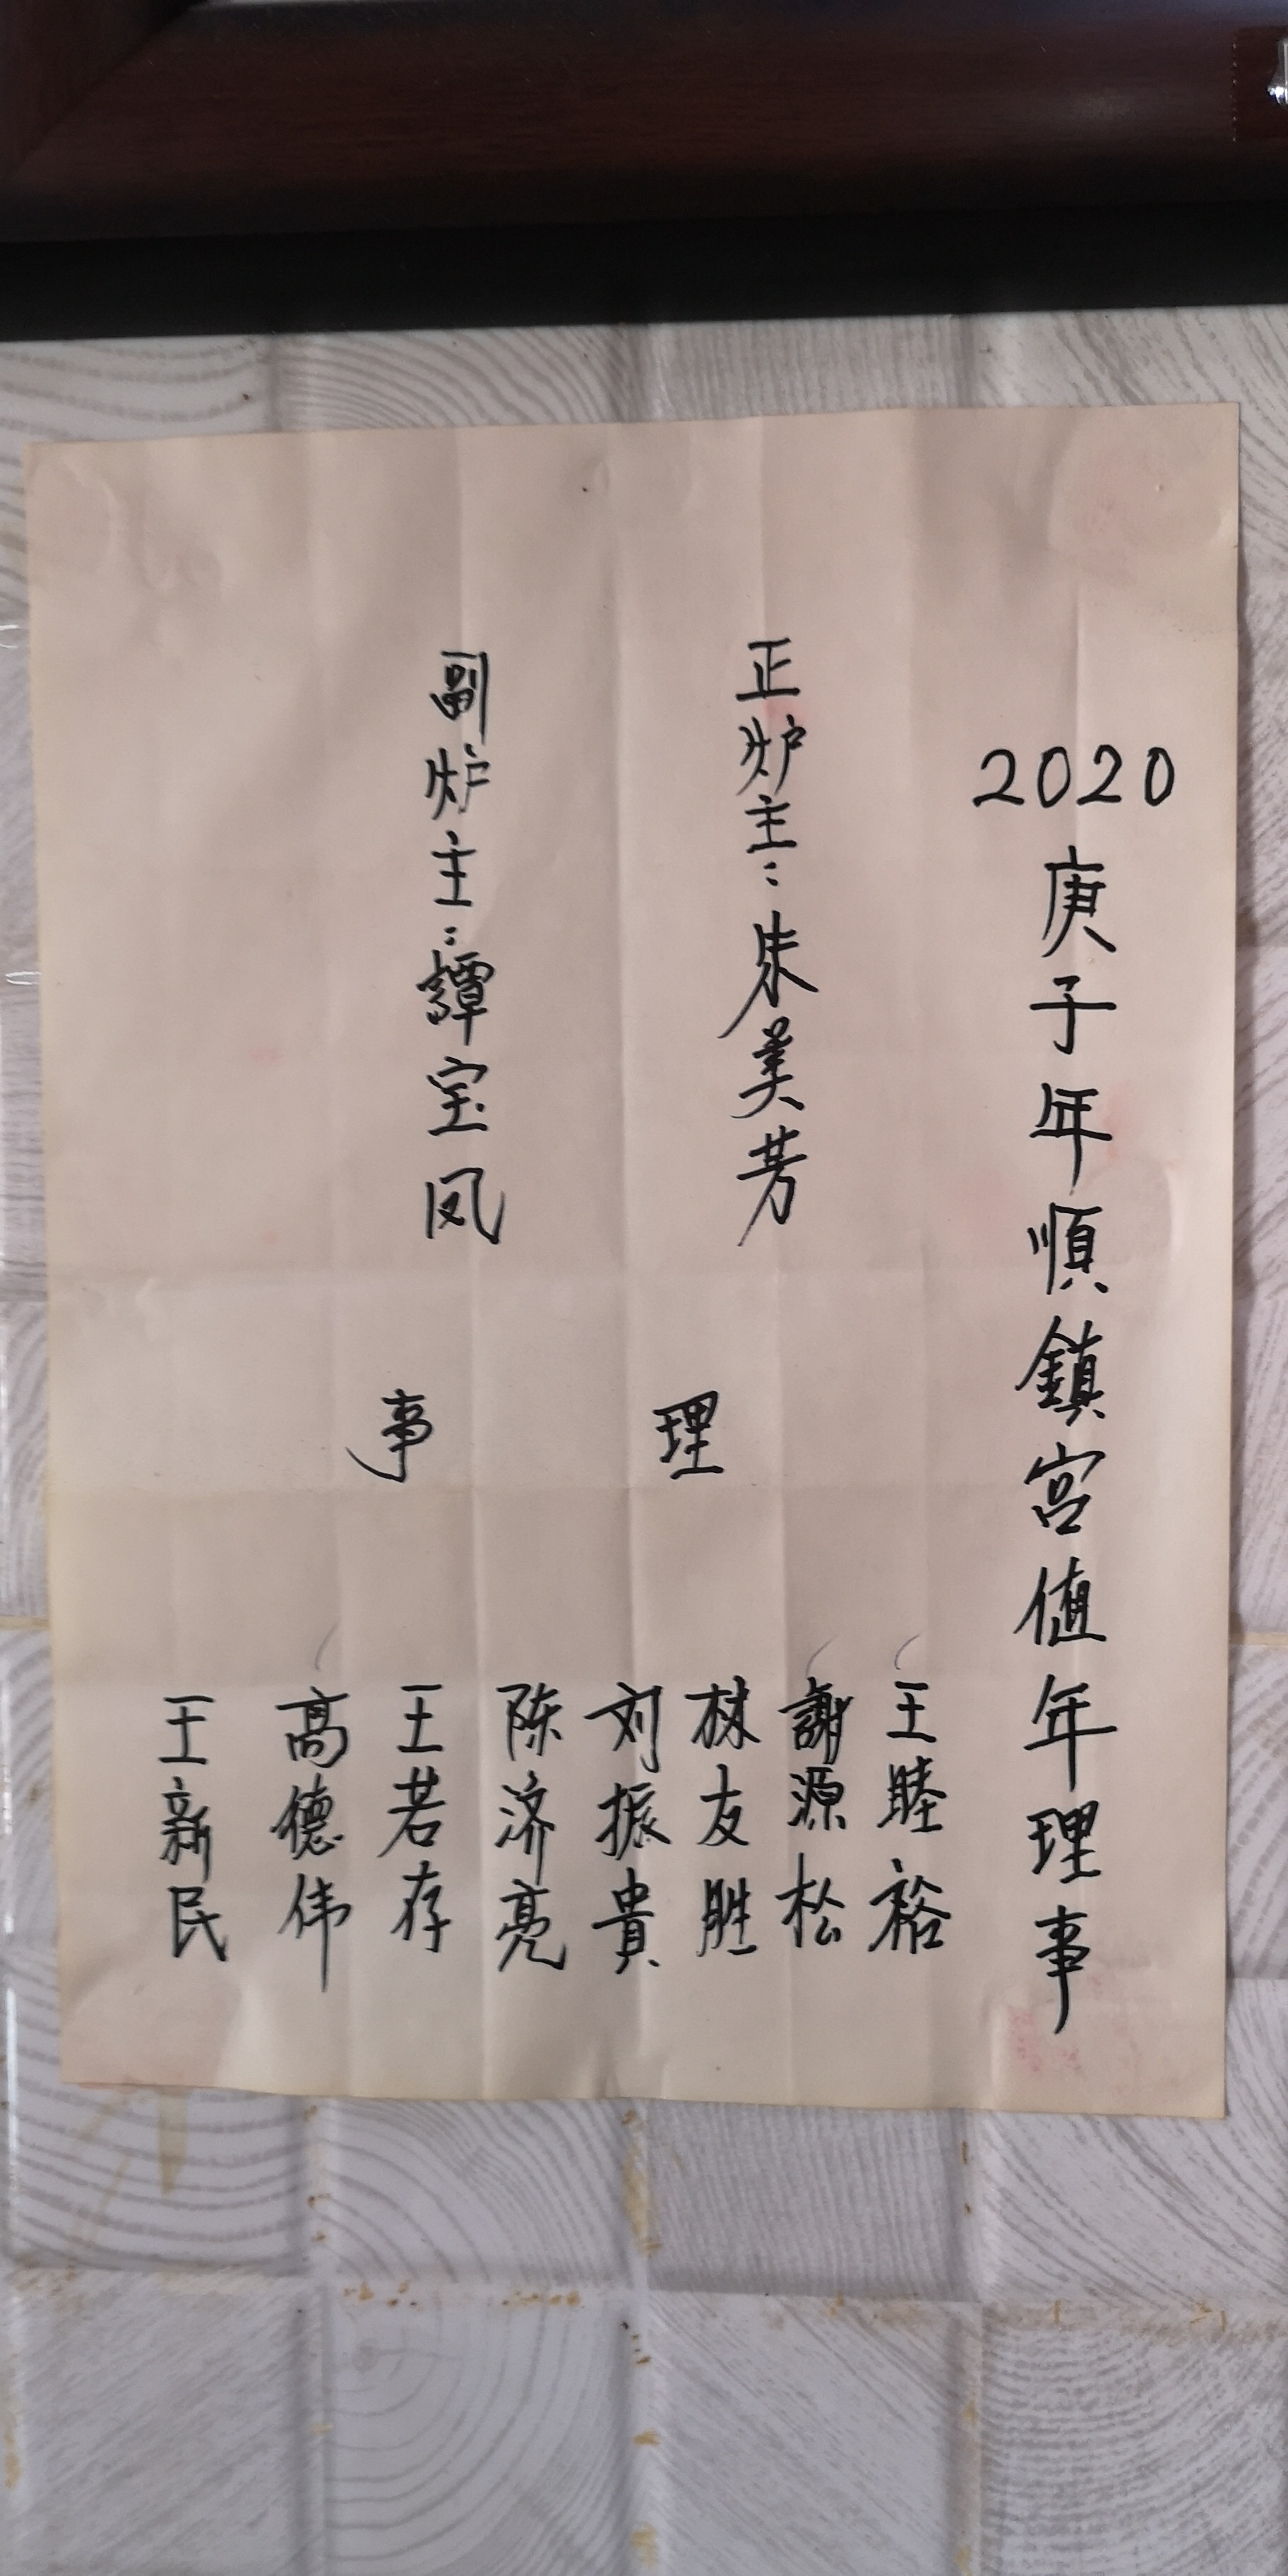 2020庚子年順鎮宮值年理事
正炉主：朱美芳
副炉主：譚宝凤
理事
王睦裕
謝源松
林友胜
刘振貴
陈济亮
王若存
高德伟
王新民